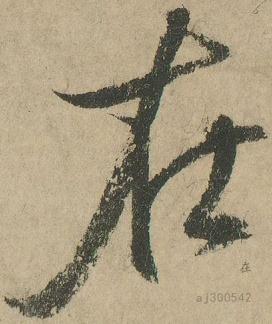 在
在
aj300542